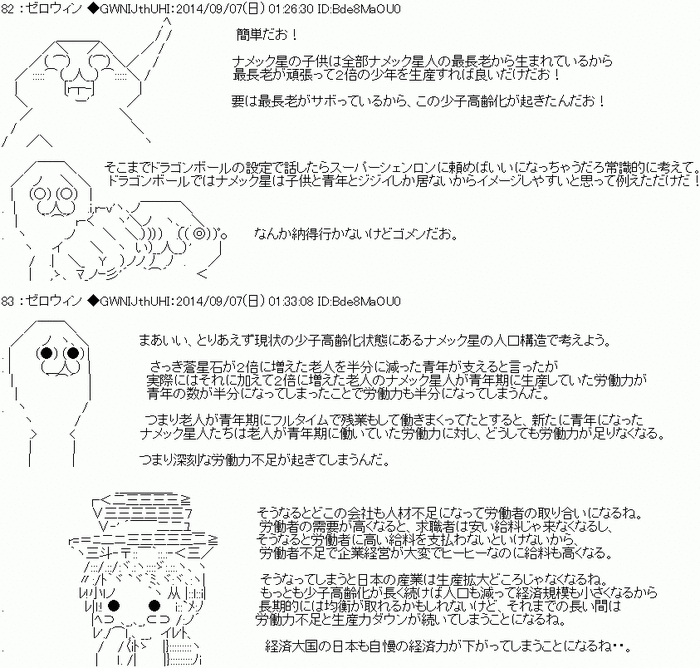 82 ：ゼロウィン ◆GWNIJthUHI：2014/09/07(日) 01:26:30 ID:Bde8MaOU0
簡単だお！
ナメック星の子供は全部ナメック星人の最長老から生まれているから
最長老が頑張って２倍の少年を生産すれば良いだけだお！
要は最長老がサボっているから、この少子高齢化が起きたんだお！
そこまでドラゴンボールの設定で話したらスーパーシェンロンに頼めばいいになっちゃうだろ常識的に考えて。
ドラゴンボールではナメック星は子供と青年とジジイしか居ないからイメージしやすいと思って例えただけだ！
なんか納得行かないけどゴメンだお。
83 ：ゼロウィン ◆GWNIJthUHI：2014/09/07(日) 01:33:08 ID:Bde8MaOU0
まあいい、とりあえず現状の少子高齢化状態にあるナメック星の人口構造で考えよう。
さっき蒼星石が２倍に増えた老人を半分に減った青年が支えると言ったが
実際にはそれに加えて２倍に増えた老人のナメック星人が青年期に生産していた労働力が
青年の数が半分になってしまったことで労働力も半分になってしまうんだ。
つまり老人が青年期にフルタイムで残業もして働きまくってたとすると、新たに青年になった
ナメック星人たちは老人が青年期に働いていた労働力に対し、どうしても労働力が足りなくなる。
つまり深刻な労働力不足が起きてしまうんだ。
そうなるとどこの会社も人材不足になって労働者の取り合いになるね。
労働者の需要が高くなると、求職者は安い給料じゃ来なくなるし、
そうなると労働者に高い給料を支払わないといけないから、
労働者不足で企業経営が大変でヒーヒーなのに給料も高くなる。
そうなってしまうと日本の産業は生産拡大どころじゃなくなるね。
もっとも少子高齢化が長く続けば人口も減って経済規模も小さくなるから
長期的には均衡が取れるかもしれないけど、それまでの長い間は
労働力不足と生産力ダウンが続いてしまうことになるね。
経済大国の日本も自慢の経済力が下がってしまうことになるね･･。